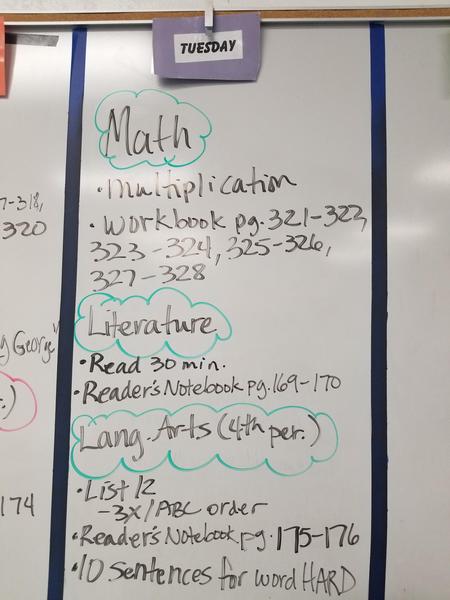 TUESDAY
Math
• Multiplication
• Workbook pg. 321-322,
323-324, 325-326,
327-328
Literature
• Read 30 min.
• Reader's Notebook pg. 169-170
Lang. Arts (4th per.)
• List 12
-3x/ABC order
• Reader's Notebook pg. 175-176
• 10 sentences for word HARD
7-318,
320
g George"
.)
174